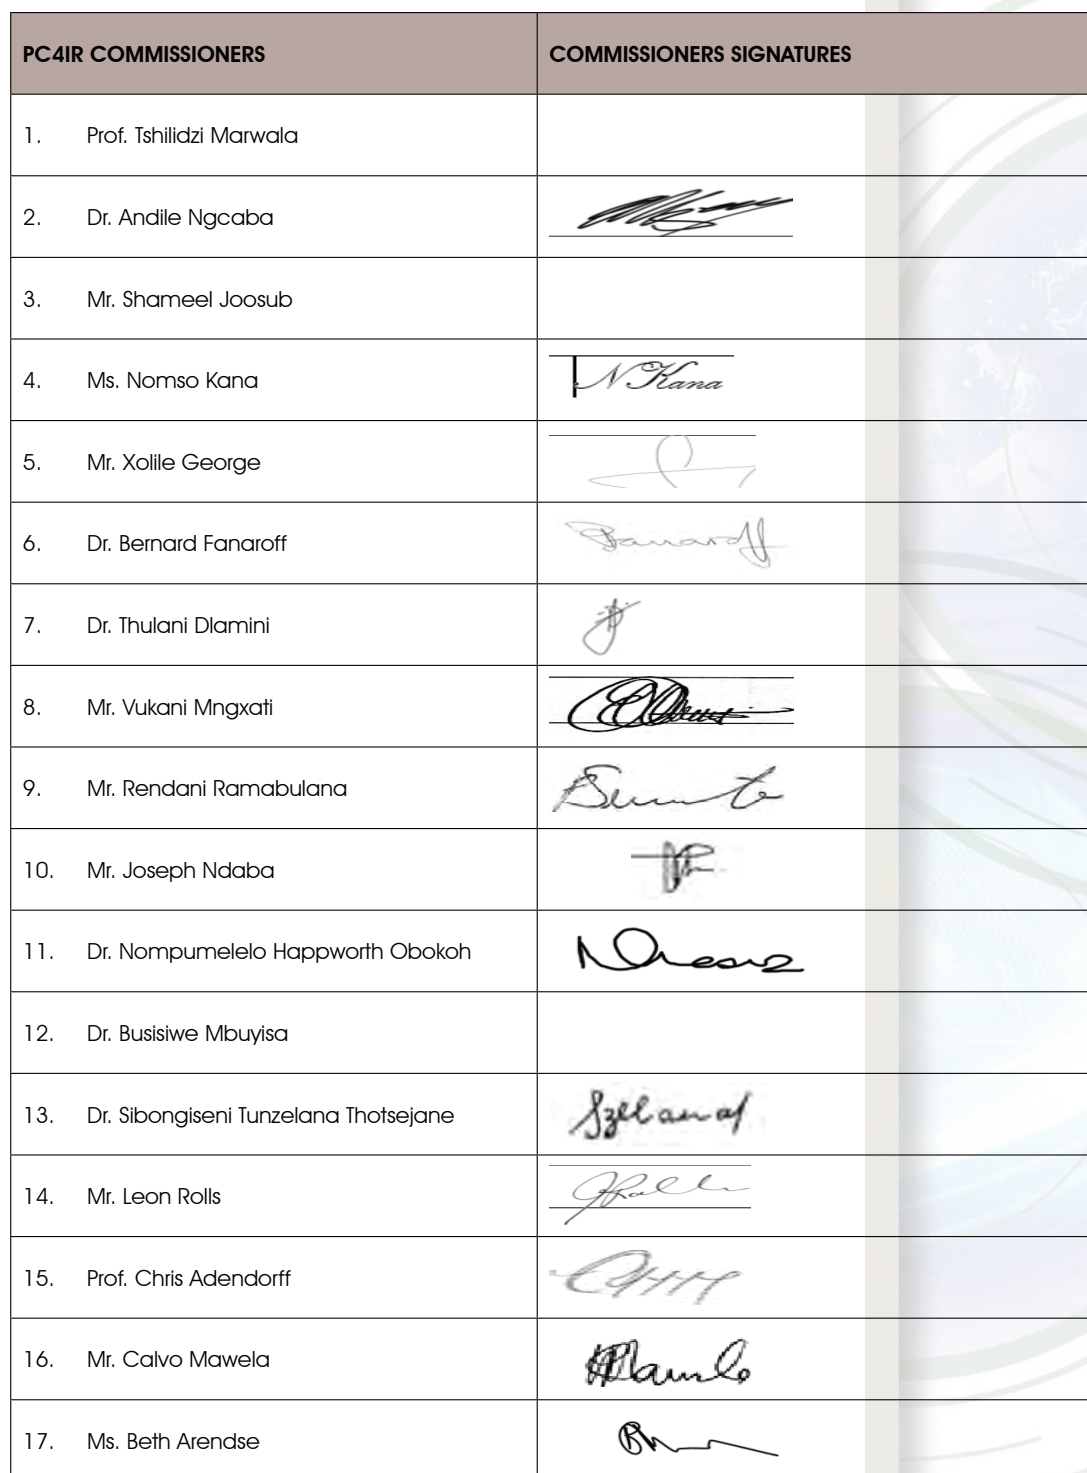 PC4IR COMMISSIONERS COMMISSIONERS SIGNATURES
1. Prof. Tshilidzi Marwala
2. Dr. Andile Ngcaba
3. Mr. Shameel Joosub
4. Ms. Nomso Kana N Kana
5. Mr. Xolile George
6. Dr. Bernard Fanaroff Fanaroff
7. Dr. Thulani Dlamini
8. Mr. Vukani Mngxati
9. Mr. Rendani Ramabulana
10. Mr. Joseph Ndaba
11. Dr. Nompumelelo Happworth Obokoh
12. Dr. Busisiwe Mbuyisa
13. Dr. Sibongiseni Tunzelana Thotsejane
14. Mr. Leon Rolls
15. Prof. Chris Adendorff
16. Mr. Calvo Mawela
17. Ms. Beth Arendse